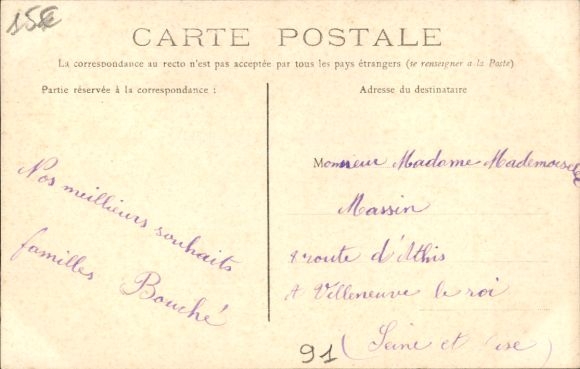 15€
CARTE POSTALE
La correspondance au recto n'est pas acceptée par tous les pays étrangers (se renseigner a la Poste)
Partie réservée à la correspondance :
Nos meilleurs souhaits
familles Bouché
Adresse du destinataire
Monsieur Madame Mademoiselle
Massin
8 route d'Athis
A Villeneuve le roi
(Seine et Oise)
91